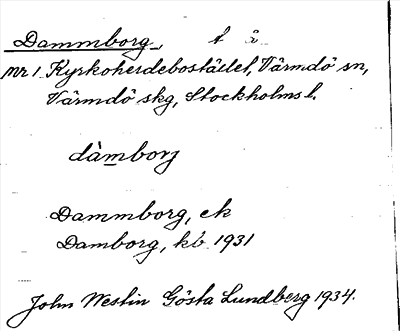 Dammborg, t å
nr 1 Kyrkoherdebostället, Värmdö sn,
Värmdö skg, Stockholms l.
dàmborj
Dammborg, ek
Damborg, kb 1931
John Westin Gösta Lundberg 1934.